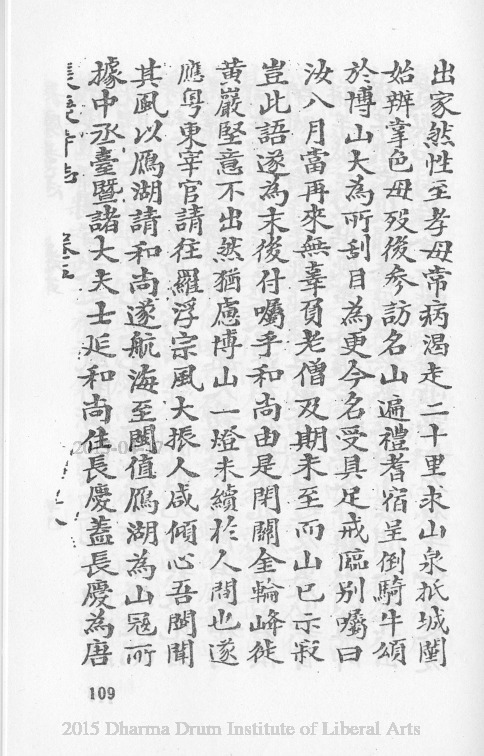 出家然性至孝母常病渴走二十里求山泉抵城闉
始辨掌色母歿後參訪名山遍禮耆宿呈倒騎牛頌
於博山大為所刮目為更今名受具足戒臨別囑曰
汝八月當再來無辜負老僧及期未至而山已示寂
豈此語遂為末後付囑乎和尚由是閉關金輪峰徙
黃巖堅意不出然猶慮博山一燈未續於人間也遂
應粵東宰官請往羅浮宗風大振人咸傾心吾閩聞
其風以鴈湖請和尚遂航海至閩值鴈湖為山寇所
據中丞臺暨諸大夫士延和尚住長慶蓋長慶為唐
長慶寺志 卷五
109
2015 Dharma Drum Institute of Liberal Arts